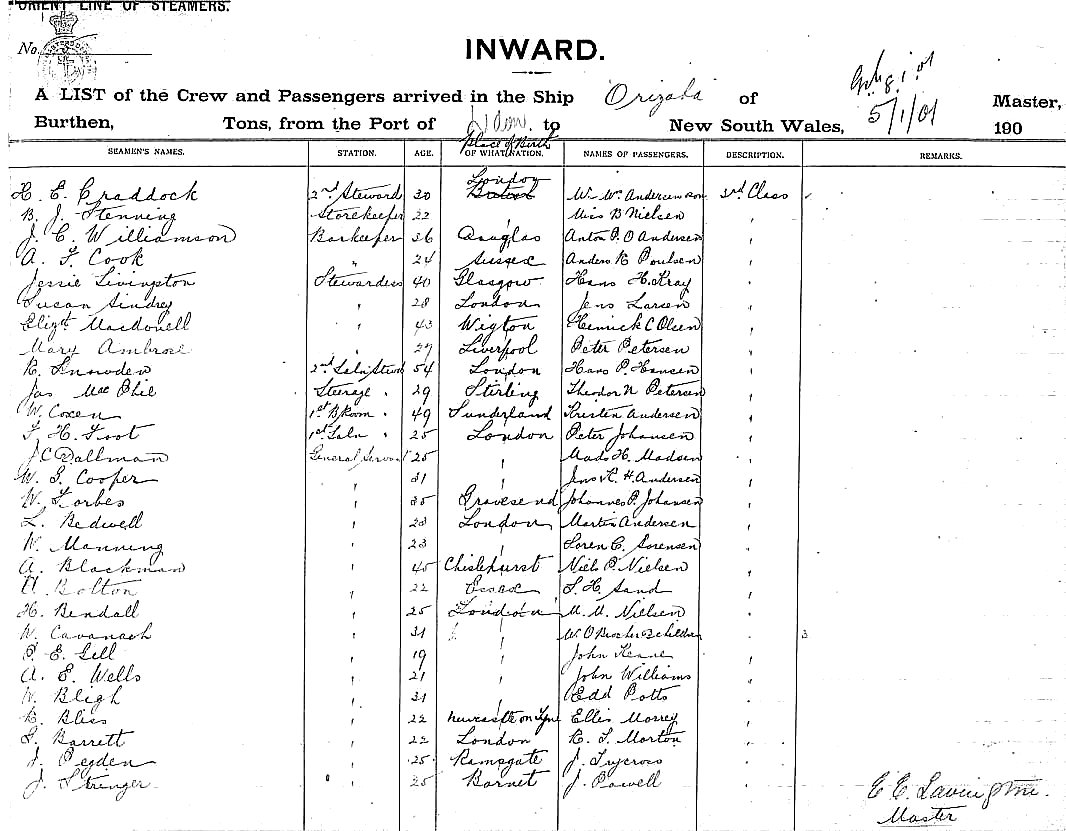 ORIENT LINE OF STEAMERS.
No.
INWARD.
A LIST of the Crew and Passengers arrived in the Ship Orizaba of Master,
Burthen, Tons, from the Port of Ldon. to New South Wales, 5/1/01 190
Place of Birth
SEAMEN'S NAMES. STATION. AGE. OF WHAT NATION. NAMES OF PASSENGERS. DESCRIPTION. REMARKS.
London
H. E. Craddock 2nd Steward 30 Bristol W. Wm. Anderson 3rd Class
B. J. Stenning Storekeeper 22 " Miss B Nielsen "
J. C. Williamson Barkeeper 36 Douglas Anton P. O Andersen "
A. F. Cook " 24 Sussex Anders K Poulsen "
Jessie Livington Stewardess 40 Glasgow Hans H. Kray "
Susan Sindrey " 28 London Jens Larsen "
Elizth Macdonell " 43 Wigton Henrick C Olsen "
Mary Ambrose " 27 Liverpool Peter Petersen "
R. Snowden 2nd Saln Stewd 54 London Hans P. Hansen "
Jas Mac Phie Steerage " 29 Stirling Theodor N Petersen "
W. Coxen 1st B/Room " 49 Sunderland Kristen Andersen "
F. H. Foot 1st Saln " 25 London Peter Johansen "
J C Dallman General Servant 25 " Mads H. Madsen "
W. S. Cooper " 31 " Jens K. H. Andersen "
W. Forbes " 35 Gravesend Johannes P. Johansen "
L. Bedwell " 23 London Martin Andersen "
W. Manning " 23 " Soren C. Sorensen "
A. Blackman " 45 Chislehurst Niels P. Nielsen "
H. Bolton " 22 Essex S. H. Sand "
H. Bendall " 25 London M. M. Nielsen "
W. Cavanagh " 31 " W. O & 2 children " 3
P. E. Gill " 19 " John Keane "
A. E. Wells " 21 " John Williams "
W. Bligh " 31 " Edd Potts "
R. Bliss " 22 Newcastle on Tyne Ellis Morrey "
S. Barrett " 22 London R. S. Morton "
J. Pegden " 25 Ramsgate J. Twycross "
J. Stringer " 25 Barnet J. Powell "
E E. Lavington.
Master